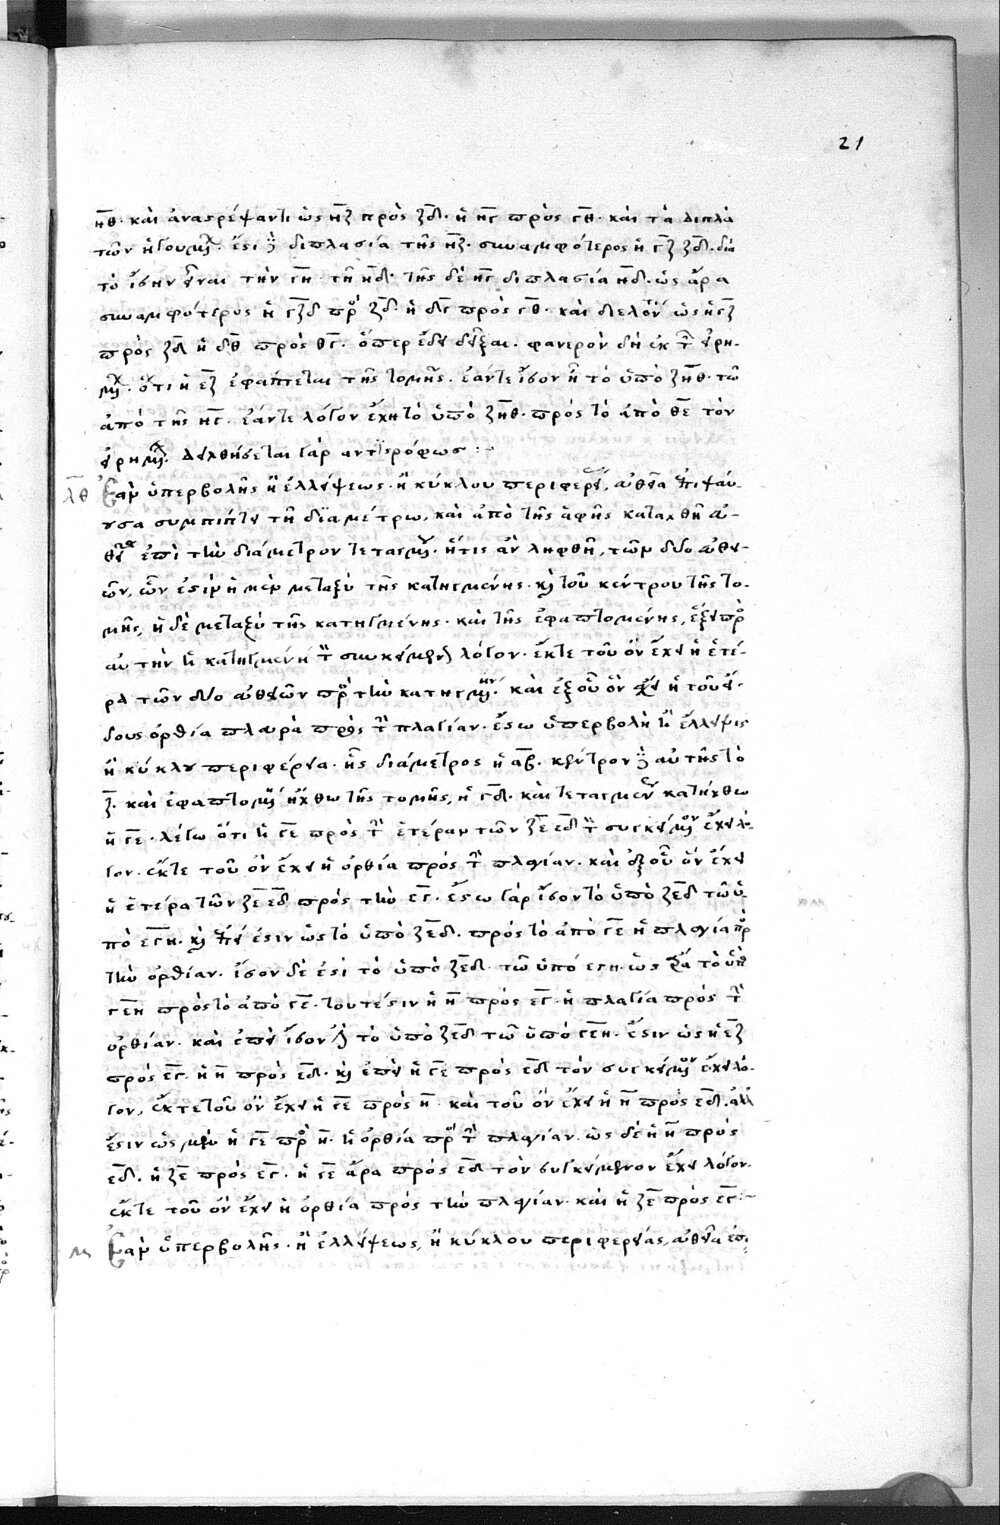 21
ηθ· καὶ ἀναστρέψαντι ὡς ηζ πρὸς ζδ· ἡ ηγ πρὸς γθ· καὶ τὰ διπλᾶ
τῶν ἡγουμ· ἔστι διπλασία τῆς ηζ· συναμφότερος ἡ γζ ζδ· διὰ
τὸ ἴσην εἶναι τὴν γη· τῆ ηδ· τῆς δὲ ηγ διπλασία ηδ· ὡς ἄρα
συναμφότερος ἡ γζδ πρ ζδ· ἡ δγ πρὸς γθ· καὶ διελον ὡς ἡ γζ
πρὸς ζδ ἡ δθ πρὸς θγ· ὅπερ ἔδει δεῖξαι· φανερὸν δὴ ἐκ τ εἰρη-
μ· ὅτι ἡ εζ ἐφάπτεται τῆς τομῆς· ἐάντε ἴσον ἦ τὸ ὑπὸ ζηθ· τῶ
ἀπὸ τῆς ηγ· ἐάντε λόγον ἔχη τὸ ὑπὸ ζηθ· πρὸς τὸ ἀπὸ θε τὸν
εἰρημ· δειχθήσεται γὰρ ἀντιστρόφως :-
λθ Ἐὰν ὑπερβολῆς ἢ ἐλλείψεως· ἢ κύκλου περιφερεί, εὐθεῖα ἐπιψαύ-
ουσα συμπίπτει τῆ διαμέτρω, καὶ ἀπὸ τῆς ἁφῆς καταχθῆ εὐ-
θεῖα ἐπὶ τὴν διάμετρον τεταγμ· ἥτις ἂν ληφθῆ, τῶν δύο εὐθει-
ῶν, ὧν ἐστὶν ἡ μὲν μεταξὺ τῆς κατηγμένης· κ τοῦ κέντρου τῆς το-
μῆς, ἡ δὲ μεταξὺ τῆς κατηγμένης· καὶ τῆς ἐφαπτομένης, ἕξει πρ
αὐτὴν ἡ κατηγμένη τ συγκείμεν λόγον· ἔκτε τοῦ ὃν ἔχει ἡ ἑτέ-
ρα τῶν δύο εὐθειῶν πρ τὴν κατηγμ· καὶ ἐξ οὗ ὃν ἔχει ἡ τοῦ εἴ-
δους ὀρθία πλευρὰ πρὸς τ πλαγίαν· ἔστω ὑπερβολὴ ἢ ἔλλειψις
ἢ κύκλου περιφέρεια· ἧς διάμετρος ἡ αβ· κέντρον αὐτῆς τὸ
ζ· καὶ ἐφαπτομ ἤχθω τῆς τομῆς, ἡ γδ· καὶ τεταγμεν κατήχθω
ἡ γε· λέγω ὅτι ἡ γε πρὸς τ ἑτέραν τῶν ζε εδ τ συγκείμ ἔχει λό-
γον· ἔκτε τοῦ ὃν ἔχει ἡ ὀρθία πρὸς τ πλαγίαν· καὶ ἐξ οὗ ὃν ἔχει
ἡ ἑτέρα τῶν ζε εδ πρὸς τὴν εγ· ἔστω γὰρ ἴσον τὸ ὑπὸ ζεδ τῶ ὑ-
πὸ εγη· κ ἐπεί ἐστιν ὡς τὸ ὑπὸ ζεδ· πρὸς τὸ ἀπὸ γε ἡ πλαγία πρ
τὴν ὀρθίαν· ἴσον δὲ ἐστὶ τὸ ὑπὸ ζεδ τῶ ὑπὸ εγη· ὡς ἄρα τὸ ὑπ
γεη πρὸς τὸ ἀπὸ γε· τουτέστιν ἡ η πρὸς εγ· ἡ πλαγία πρὸς τ
ὀρθίαν· καὶ ἐπεὶ ἴσον ἐ τὸ ὑπὸ ζεδ τῶ ὑπὸ γεη· ἔστιν ὡς ἡ εζ
πρὸς εγ· ἡ η πρὸς εδ· κ ἐπεὶ ἡ γε πρὸς εδ τὸν συγκείμ ἔχει λό-
γον, ἔκτε τοῦ ὃν ἔχει ἡ γε πρὸς η· καὶ τοῦ ὃν ἔχει ἡ η πρὸς εδ. ἀλλ
ἔστιν ὡς μὲν ἡ γε πρ η· ἡ ὀρθία πρ τ πλαγίαν· ὡς δὲ ἡ η πρὸς
εδ· ἡ ζε πρὸς εγ· ἡ γε ἄρα πρὸς εδ τὸν συγκείμενον ἔχει λόγον·
ἔκτε τοῦ ὃν ἔχει ἡ ὀρθία πρὸς τὴν πλαγίαν· καὶ ἡ ζε πρὸς εγ :-
μ Ἐὰν ὑπερβολῆς· ἢ ἐλλείψεως, ἢ κύκλου περιφερείας, εὐθεῖα ἐπι